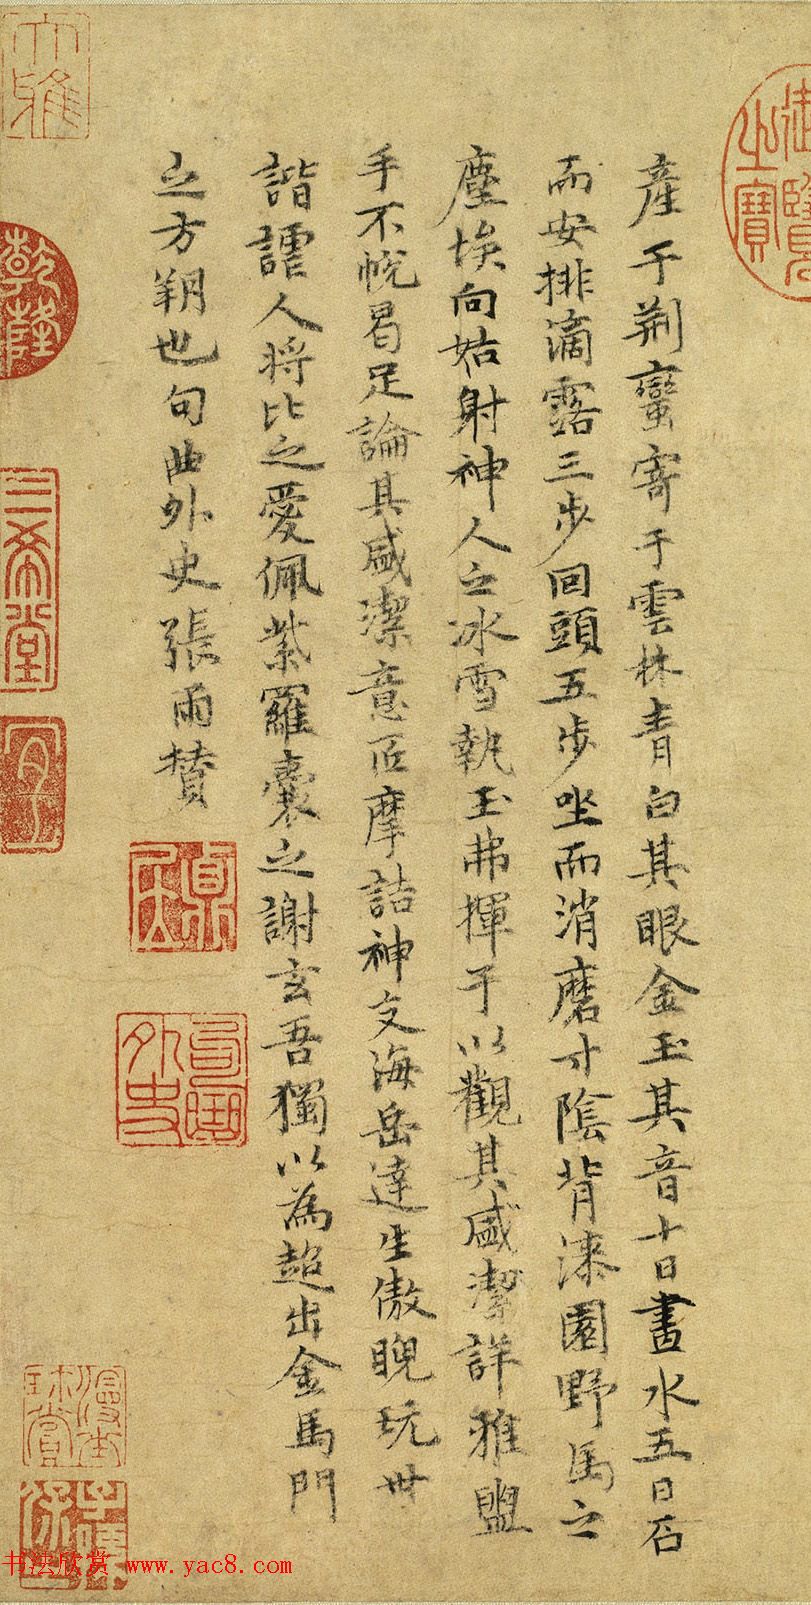 產于荊蠻寄于雲林青白其眼金玉其音十日畫水五日石
而安排滴露三步回頭五步坐而消磨寸陰背漆園野馬之
塵埃向姑射神人之冰雪執玉拂揮于以觀其盛潔詳雅盥
手不帨曷足論其盛潔意匠摩詰神交海岳達生傲睨玩世
諧謔人將比之愛佩紫羅囊之謝玄吾獨以為超出金馬門
之方朔也句曲外史張雨贊
御覽之寶
大雅
乾隆
三希堂
宜子
貞居
句曲外史
書法欣赏 www.yac8.com